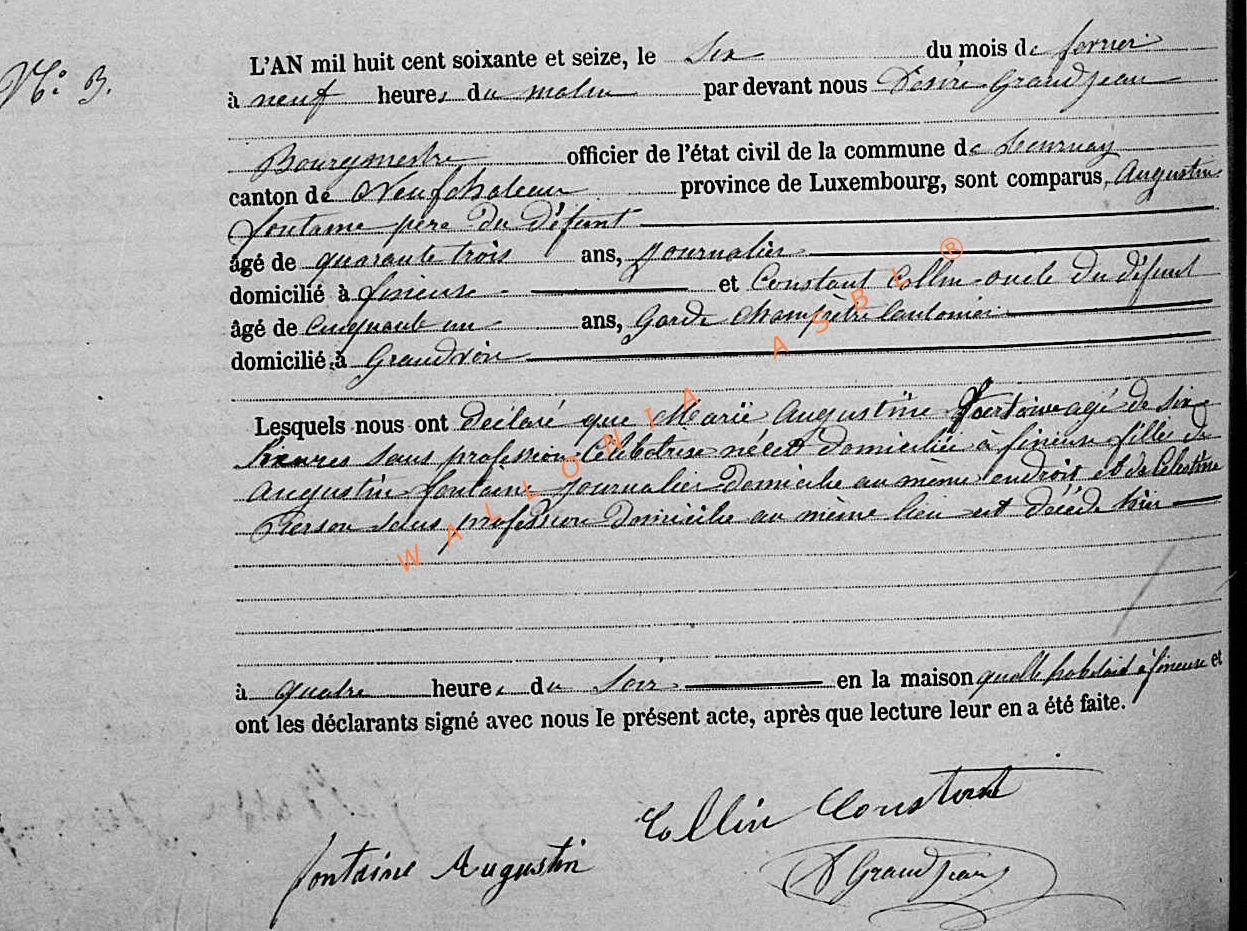 N.° 3.
L'AN mil huit cent soixante et seize, le six du mois de fevrier
à neuf heures du matin par devant nous Désiré Grandjean
Bourgmestre officier de l'état civil de la commune de Tournay
canton de Neufchateau province de Luxembourg, sont comparus, Augustin
fontaine père du défunt
âgé de quarante trois ans, journalier
domicilié à fineuse et Constant Collin oncle du défunt
âgé de Cinquante un ans, Garde champêtre Cantonier
domicilié à Grandvoir
Lesquels nous ont déclaré que Marië Augustine Fontaine agé de six
heures sans profession Célibatrise née et domiciliée à finieuse fille de
Augustin fontaine journalier domicilie au même endroit et de Célestine
Pierson sans profession domicilie au même lieu est décédé hier
à quatre heures du soir en la maison quelle habitait à fineuse et
ont les déclarants signé avec nous le présent acte, après que lecture leur en a été faite.
Collin Constant
fontaine Augustin
D Grandjean
WALLONIA ASBL ®